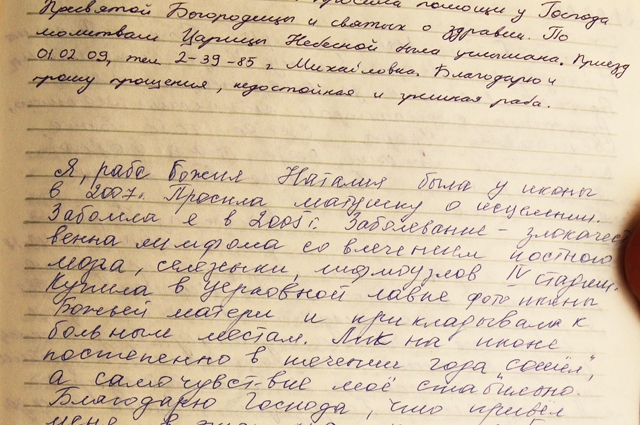 просила помощи у Господа
Пресвятой Богородицы и святых о здравии. По
молитвам Царицы Небесной была услышана. Приезд
01.02.09, тел 2-39-85 г Михайловка. Благодарю и
прошу прощения, недостойная и грешная раба.
Я, раба Божия Наталия была у иконы
в 2007г. Просила матушку о исцелении.
Заболела я в 2005г. Заболевание - злокачест
венна лимфома со влечением костного
мозга, селезенки, лимфоузлов IV стадии.
Купила в церковной лавке фото иконы
Божьей матери и прикладывала к
больным местам. Лик на иконе
постепенно в течении года "сошёл",
а самочувст-вие моё стабильно.
Благодарю Господа, что привёл
меня